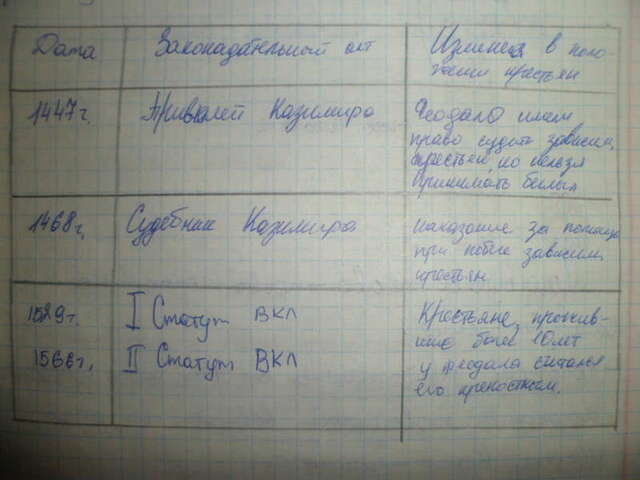 Дата
Законадательный акт
Изменен. в поло-
жении крестьян
1447г.
Привилей Казимира
Феодалы имели
право судить зависим.
крестьян, но нельзя
принимать беглых
1468г.
Судебник Казимира
наказание за помощь
при побеге зависимых
крестьян
1529г.
I Статут ВКЛ
1566г.
II Статут ВКЛ
Крестьяне, прожив-
шие более 10 лет
у феодала считался
его крепостным.